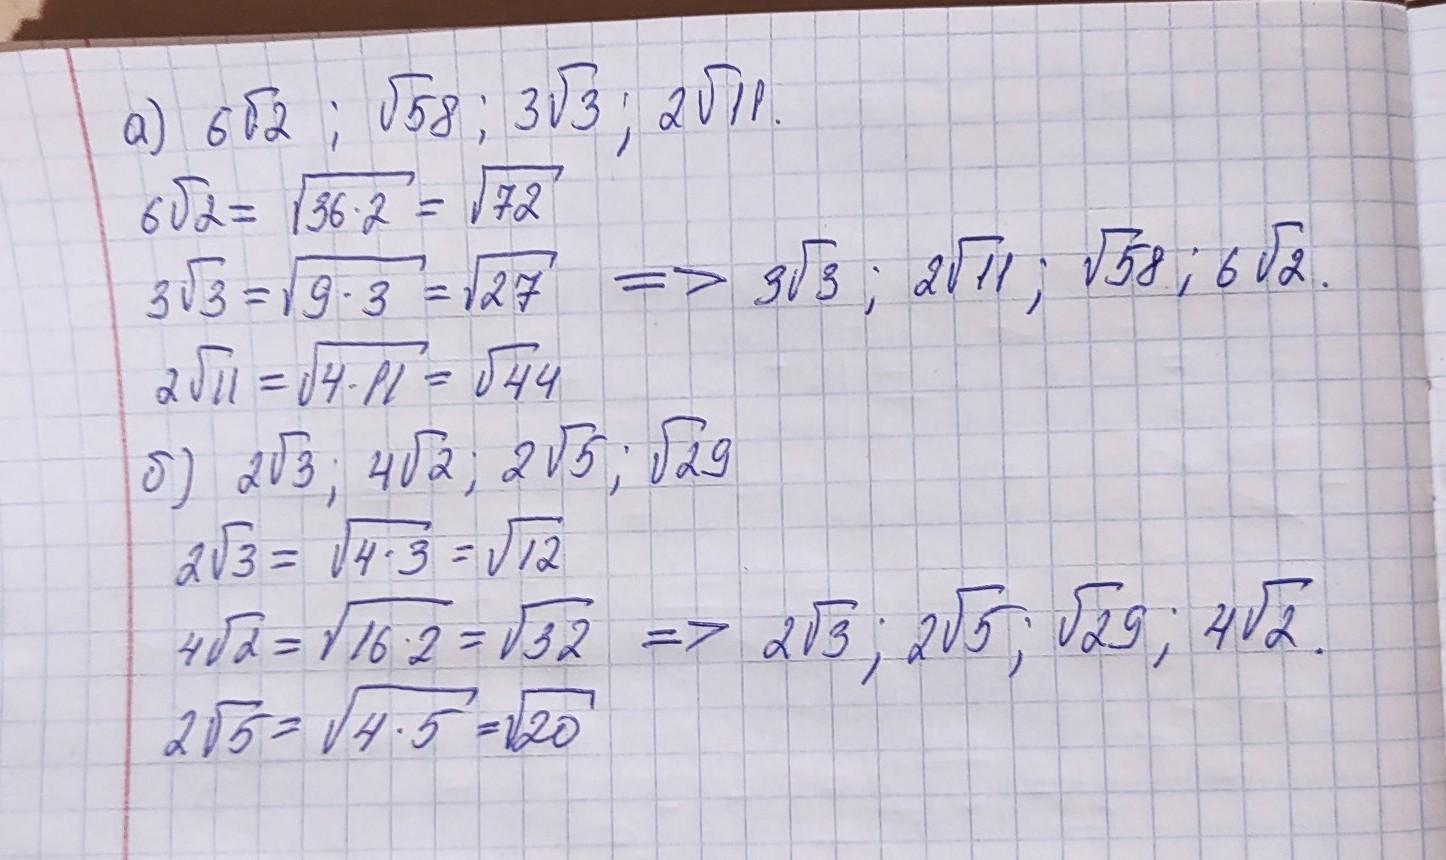 а) 6√2 ; √58 ; 3√3 ; 2√11.
6√2 = √36·2 = √72
3√3 = √9·3 = √27 => 3√3 ; 2√11 ; √58 ; 6√2.
2√11 = √4·11 = √44
б) 2√3 ; 4√2 ; 2√5 ; √29
2√3 = √4·3 = √12
4√2 = √16·2 = √32 => 2√3 ; 2√5 ; √29 ; 4√2.
2√5 = √4·5 = √20